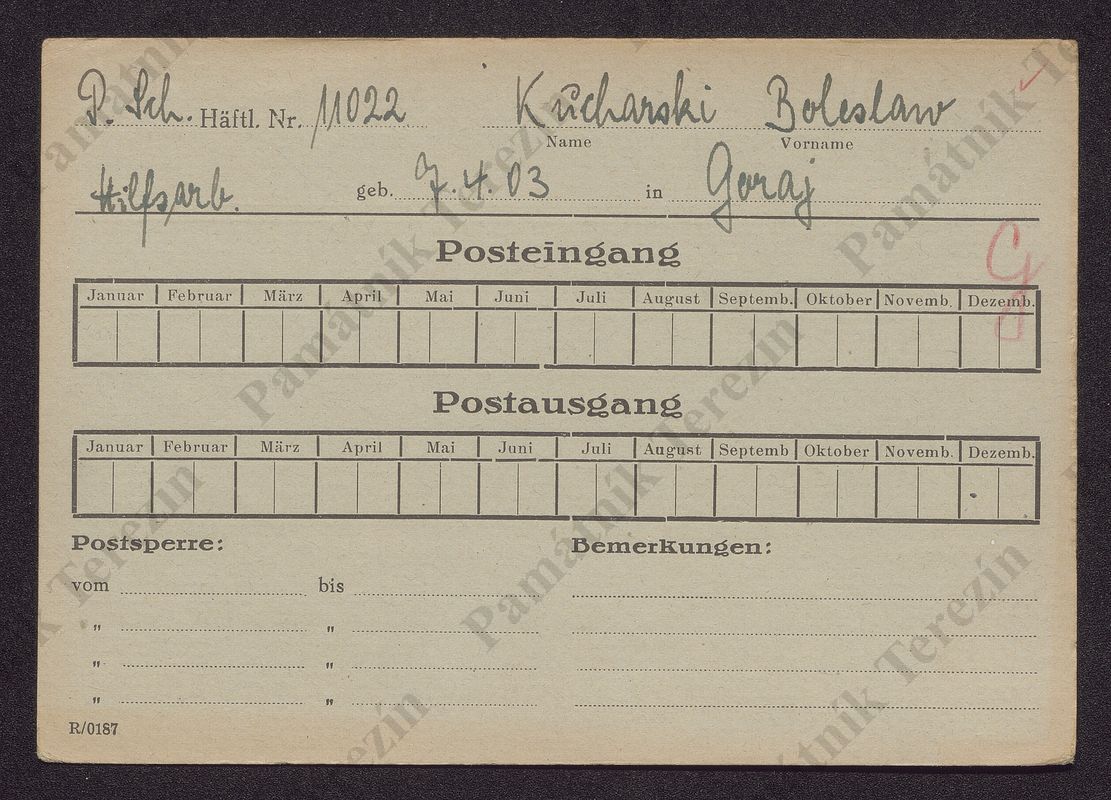 P. Sch. Häftl. Nr. 11022 Kucharski Boleslaw
Name Vorname
Hilfsarb. geb. 7.4.03 in Goraj
Posteingang
Januar Februar März April Mai Juni Juli August Septemb. Oktober Novemb. Dezemb.
Postausgang
Januar Februar März April Mai Juni Juli August Septemb Oktober Novemb. Dezemb.
Postsperre: Bemerkungen:
vom bis
" "
" "
" "
R/0187
Památník Terezín